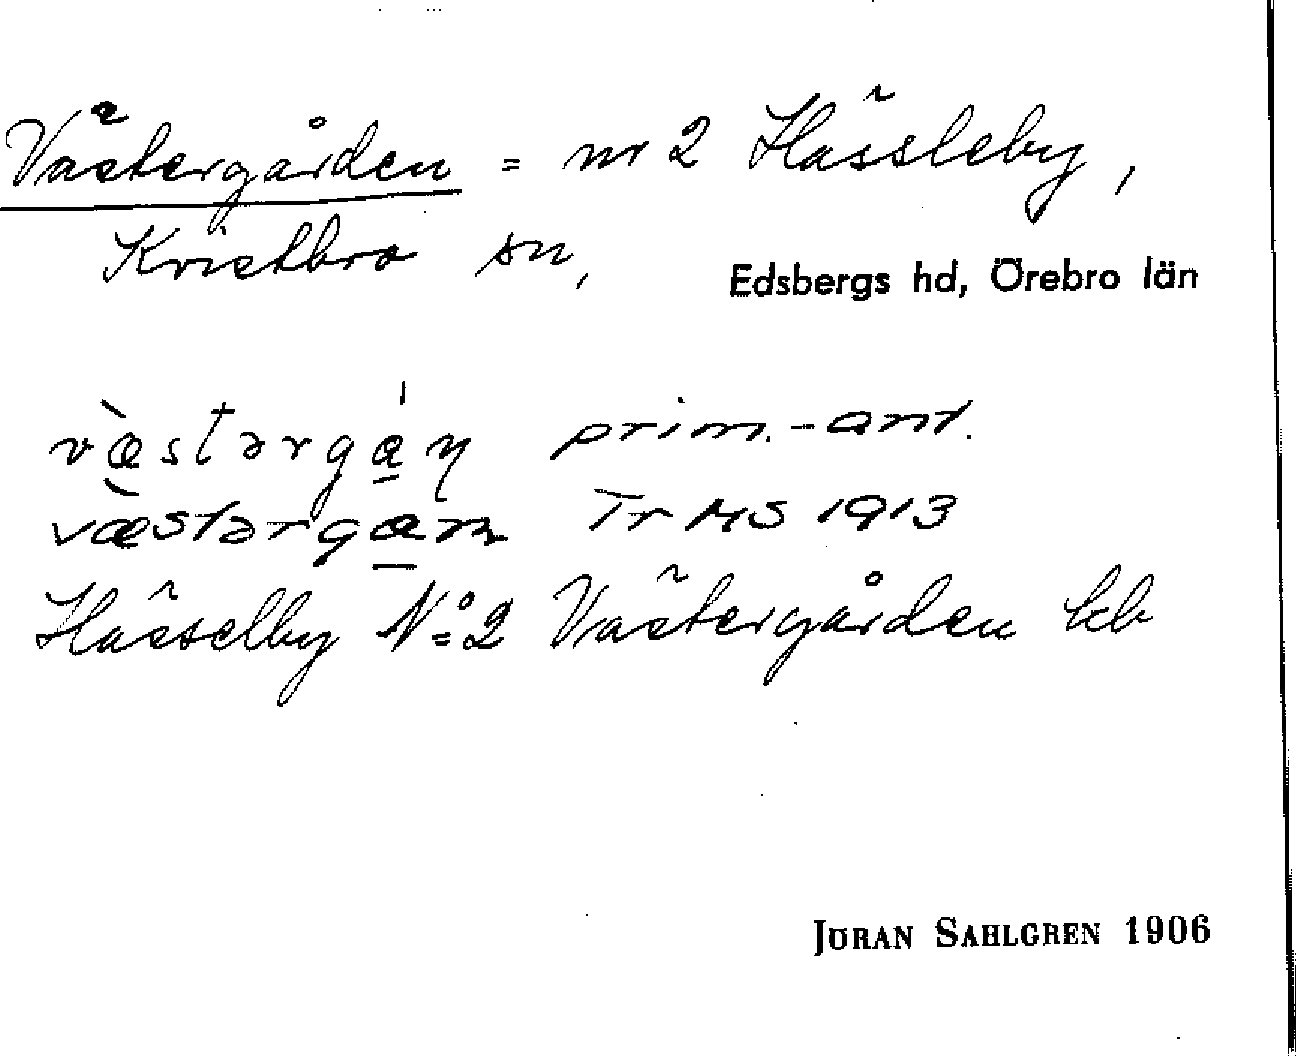 Västergården = nr 2 Hässleby,
Kvistbro sn, Edsbergs hd, Örebro län
væ̀stərga̱̍ɳ prim.-ant.
væ̀stərga̱ɳ Tr MS 1913
Hässelby No 2 Västergården kb
JÖRAN SAHLGREN 1906